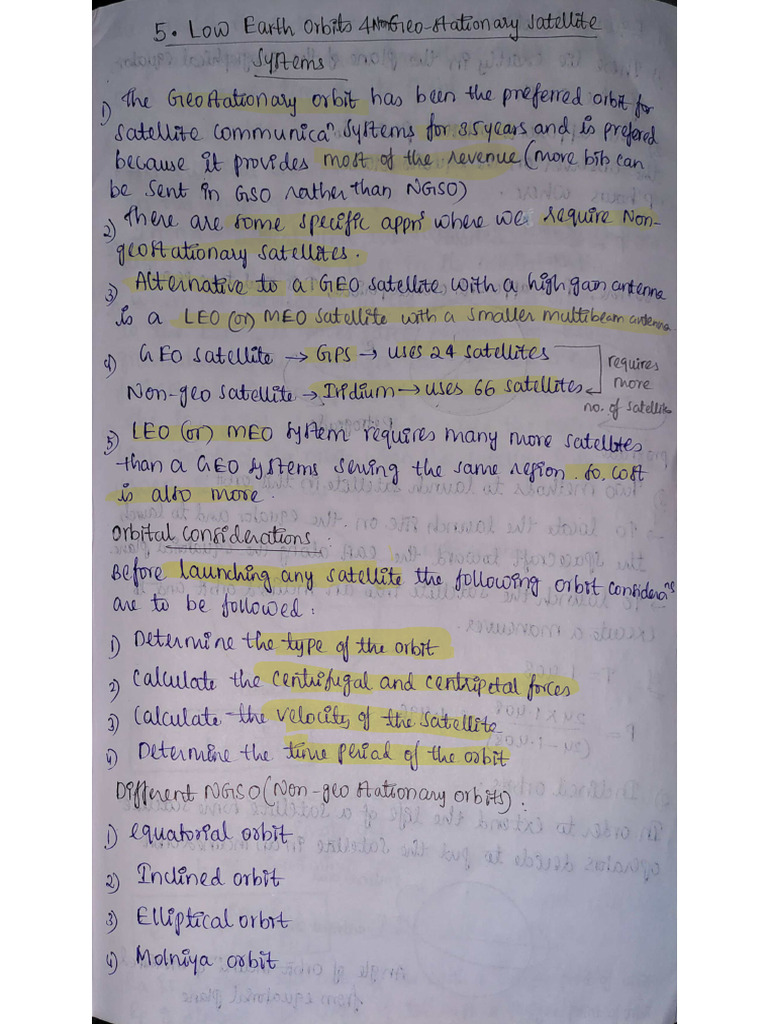 5. Low Earth Orbits & Non Geo-stationary Satellite
Systems
1) The Geostationary orbit has been the preferred orbit for
satellite communicaⁿ systems for 35 years and is prefered
because it provides most of the revenue (more bib can
be sent in GSO rather than NGSO)
2) There are some specific appnˢ where we require Non-
geostationary satellites.
3) Alternative to a GEO satellite with a high gain antenna
is a LEO (or) MEO satellite with a smaller multibeam antenna
4) GEO satellite → GPS → uses 24 satellites
Non-geo satellite → Iridium → uses 66 satellites
requires
more
no. of satellite
5) LEO (or) MEO system requires many more satellites
than a GEO systems serving the same region. so, cost
is also more.
Orbital Considerations:
Before launching any satellite the following orbit consideraⁿˢ
are to be followed:
1) Determine the type of the orbit
2) Calculate the centrifugal and centripetal forces
3) Calculate the velocity of the satellite
4) Determine the time period of the orbit
Different NGSO (Non-geo stationary orbits):
1) equatorial orbit
2) Inclined orbit
3) Elliptical orbit
4) Molniya orbit